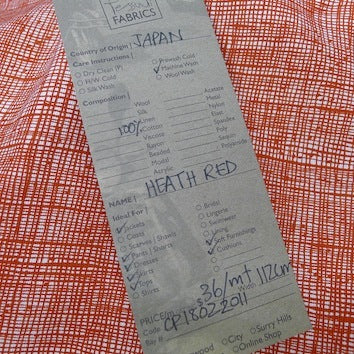 FABRICS
Country of Origin | JAPAN
Care Instructions |
Dry Clean (P)
H/W Cold
Silk Wash
Prewash Cold
✓ Machine Wash
Wool Wash
Composition |
Wool
Silk
Linen
100% Cotton
Viscose
Rayon
Beaded
Modal
Acrylic
Acetate
Metal
Nylon
Elastan
Spandex
Poly
Sequin
Polyamide
NAME | HEATH RED
Ideal For |
✓ Jackets
Coats
Scarves / Shawls
✓ Pants / Shorts
✓ Dresses
✓ Skirts
✓ Tops
Shirts
Bridal
Lingerie
Swimwear
Lining
✓ Soft Furnishings
✓ Cushions
PRICE(m) $36/mt Width 112cm
Code OP18022011
Buy #
City
Surry Hills
Online Shop